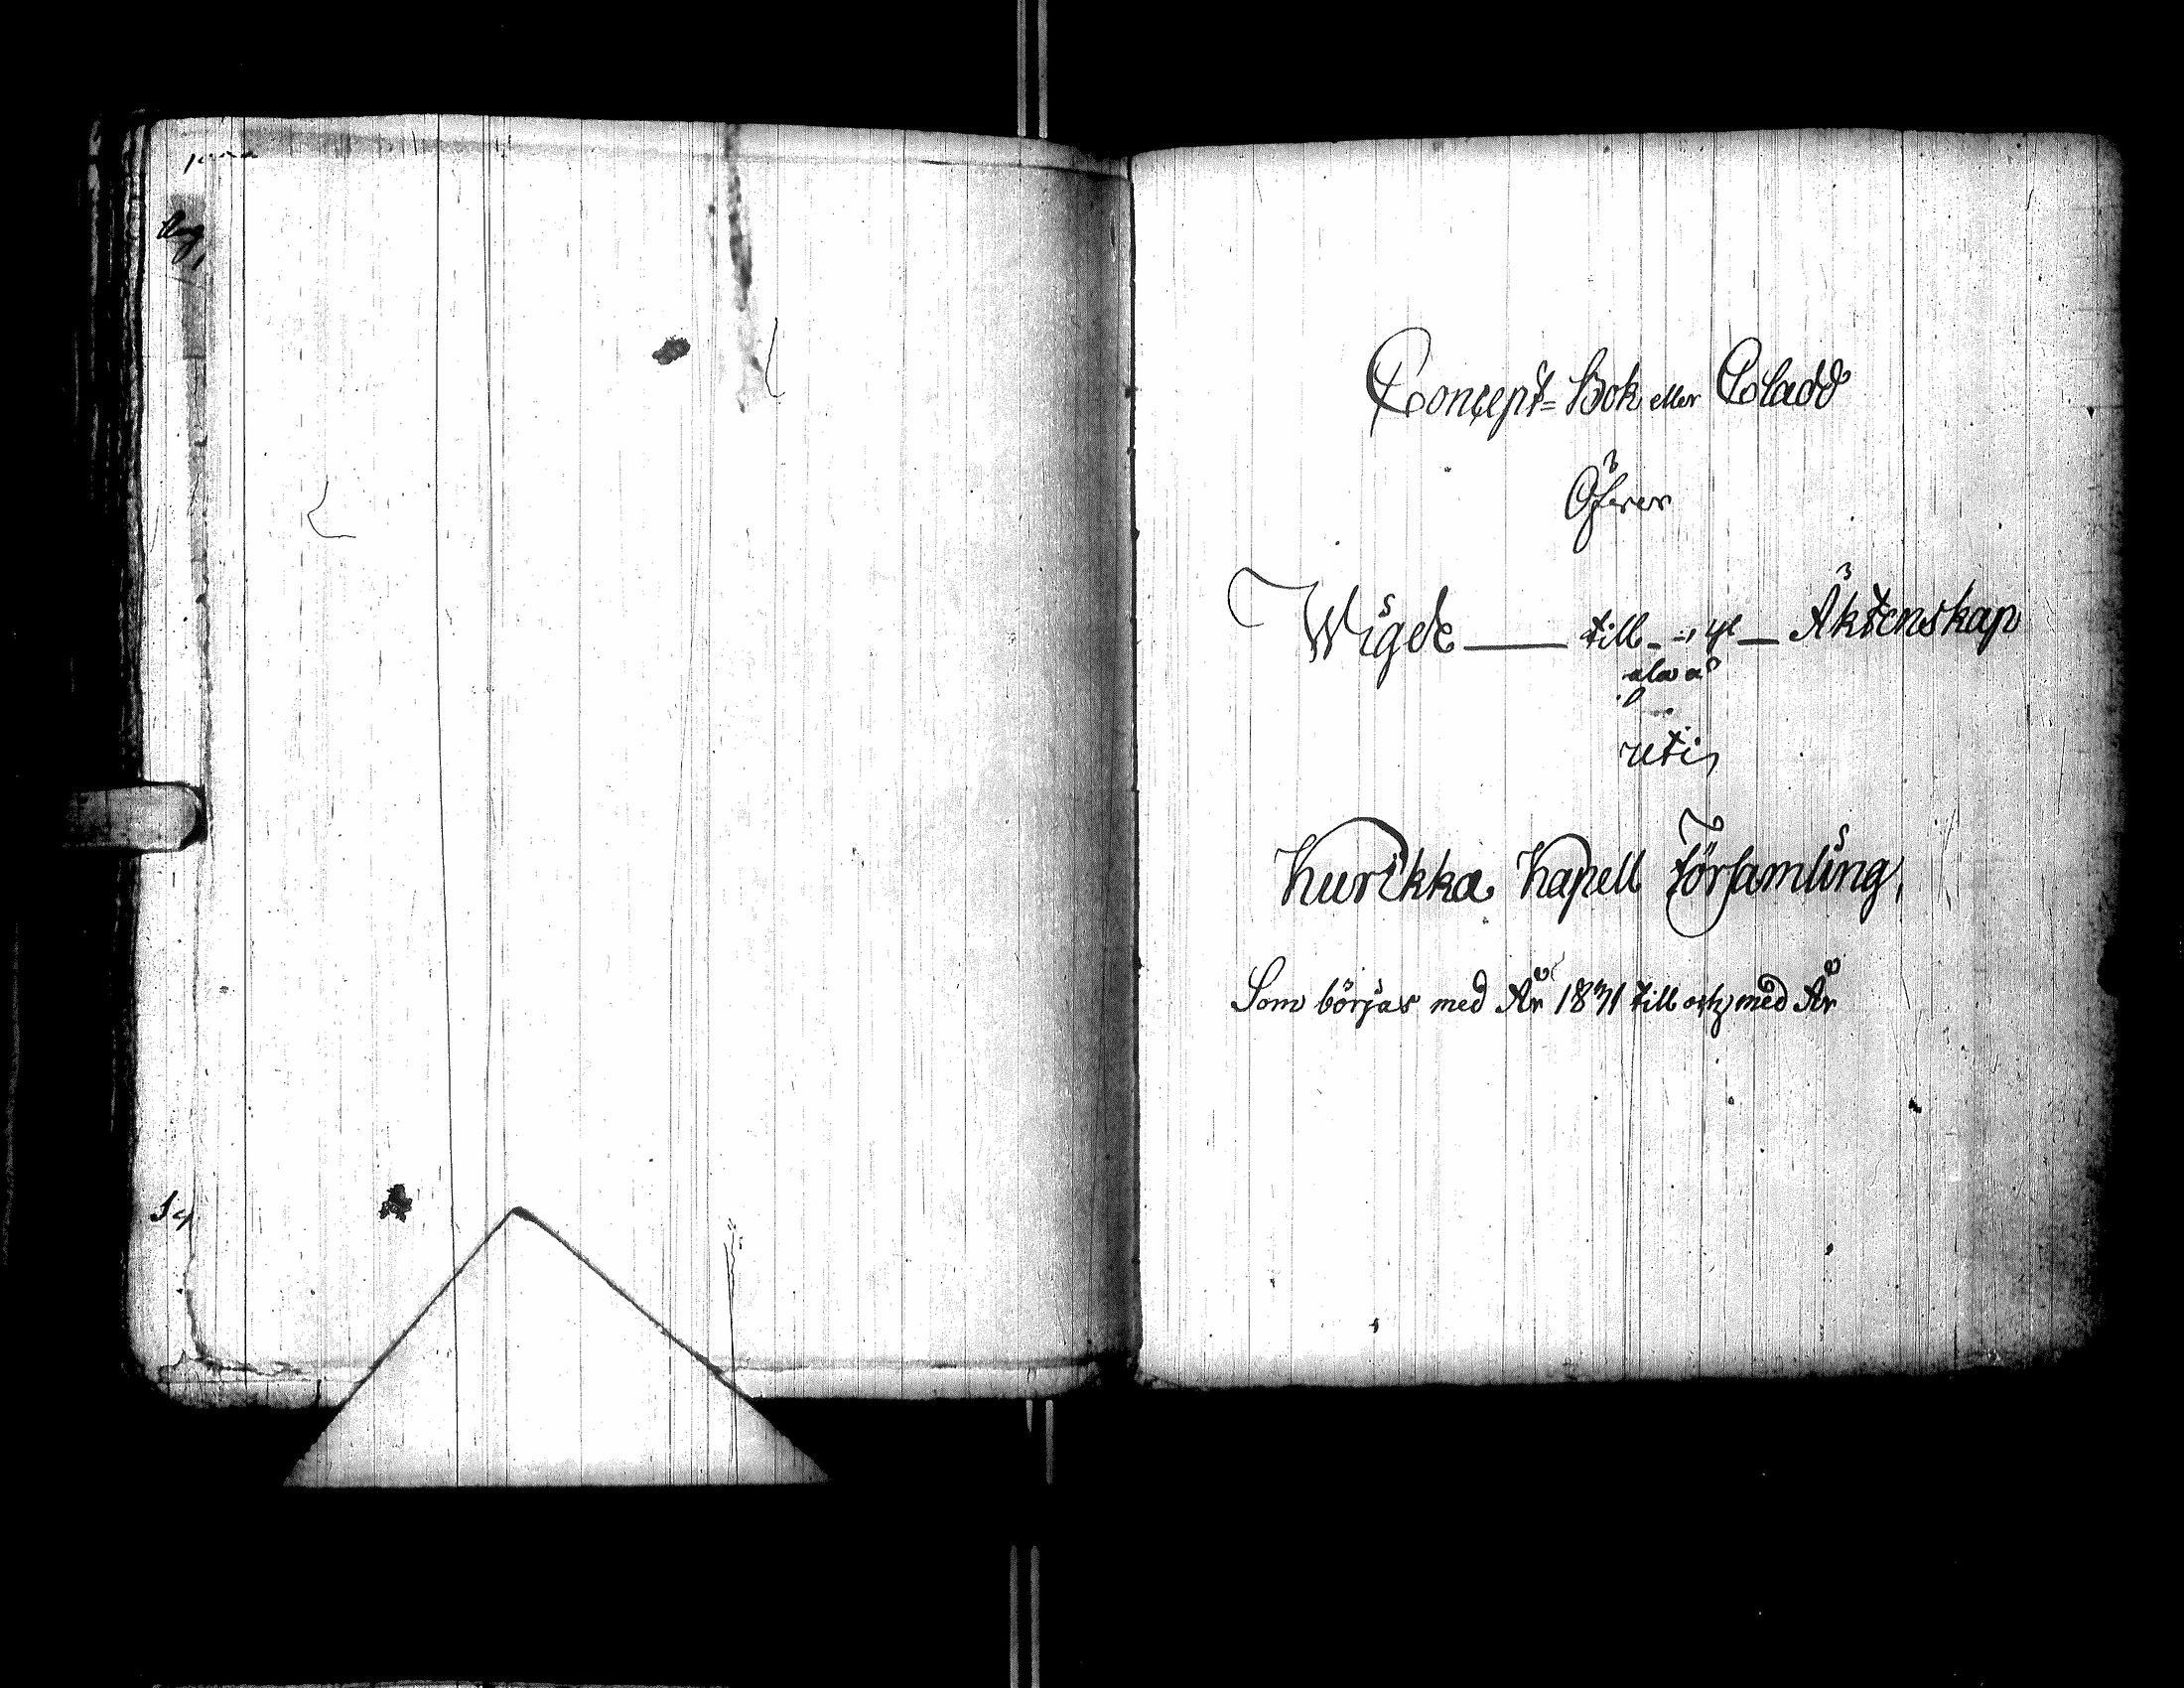 Aug,
Concept= Bok eller Cladd
Öfver
Wigde — till — Äktenskap
uti
Kurikka Kapell Församling,
Som börjas med År 1831 till och med År